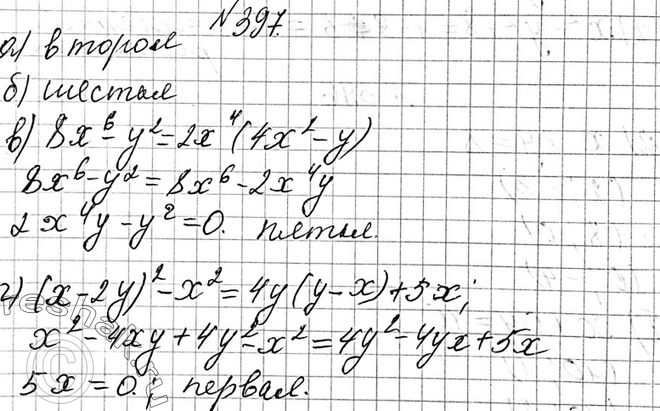 №397.
а) втором
б) шестая
в) 8x⁶-y²=2x⁴(4x²-y)
8x⁶-y²=8x⁶-2x⁴y
2x⁴y-y²=0. пятая.
г) (x-2y)²-x²=4y(y-x)+5x;
x²-4xy+4y²-x²=4y²-4yx+5x
5x=0; первая.